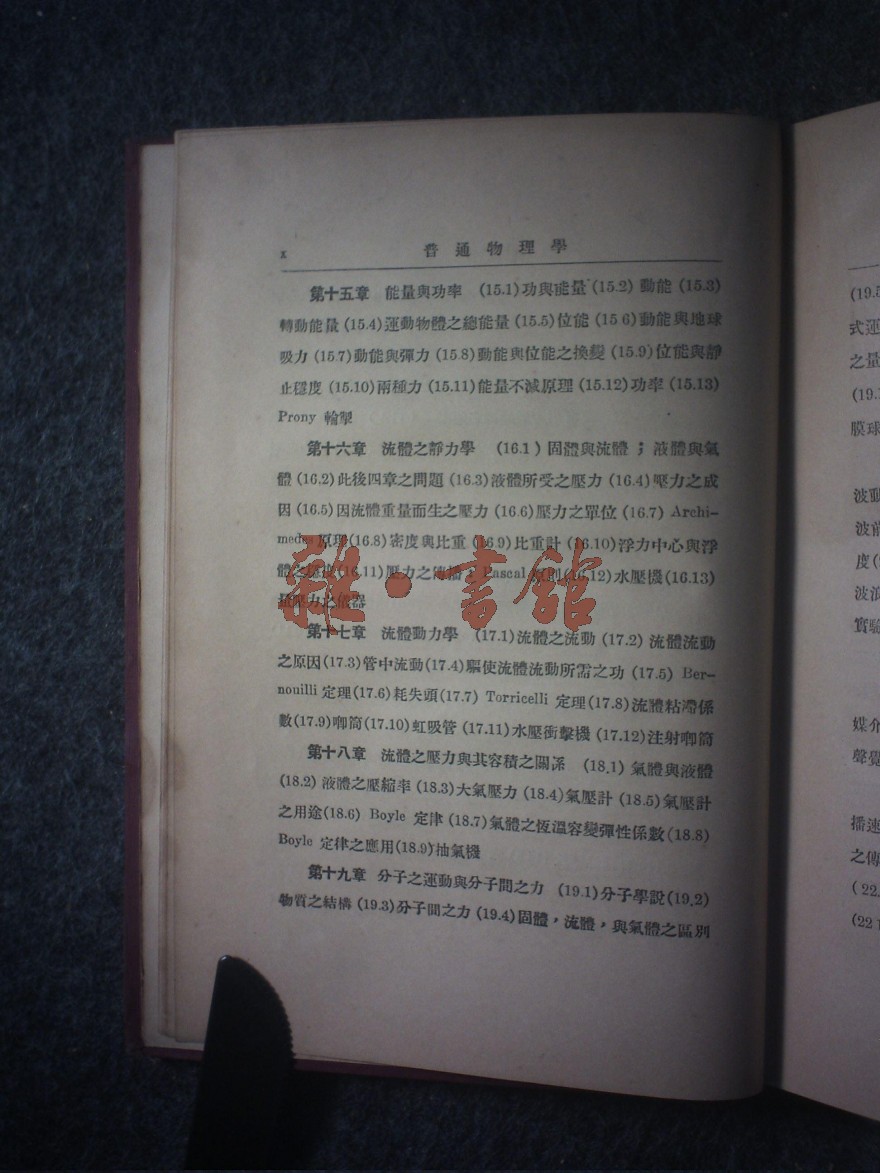 x 普通物理學
第十五章 能量與功率 (15.1)功與能量(15.2) 動能 (15.3)
轉動能量 (15.4)運動物體之總能量 (15.5)位能 (15 6)動能與地球
吸力 (15.7)動能與彈力 (15.8)動能與位能之換變 (15.9)位能與靜
止穩度 (15.10)兩種力 (15.11)能量不滅原理 (15.12)功率 (15.13)
Prony 輪掣
第十六章 流體之靜力學 (16.1) 固體與流體；液體與氣
體 (16.2)此後四章之問題 (16.3)液體所受之壓力 (16.4)壓力之成
因 (16.5)因流體重量而生之壓力 (16.6)壓力之單位 (16.7) Archi-
medes 原理(16.8)密度與比重(16.9)比重計(16.10)浮力中心與浮
體之穩度(16.11)壓力之傳播；Pascal 原則(16.12)水壓機(16.13)
量壓力之儀器
第十七章 流體動力學 (17.1)流體之流動 (17.2) 流體流動
之原因(17.3)管中流動(17.4)驅使流體流動所需之功 (17.5) Ber-
nouilli 定理(17.6)耗失頭(17.7) Torricelli 定理(17.8)流體粘滯係
數(17.9)唧筒(17.10)虹吸管 (17.11)水壓衝擊機 (17.12)注射唧筒
第十八章 流體之壓力與其容積之關係 (18.1) 氣體與液體
(18.2) 液體之壓縮率 (18.3)大氣壓力 (18.4)氣壓計 (18.5)氣壓計
之用途(18.6) Boyle 定律 (18.7)氣體之恆溫容變彈性係數(18.8)
Boyle 定律之應用(18.9)抽氣機
第十九章 分子之運動與分子間之力 (19.1)分子學說(19.2)
物質之結構 (19.3)分子間之力 (19.4)固體，流體，與氣體之區別
雜·書館
(19.5
式運
之量
(19.1
膜球
波動
波前
度(
波浪
實驗
媒介
聲覺
播速
之傳
(22.
(22 1